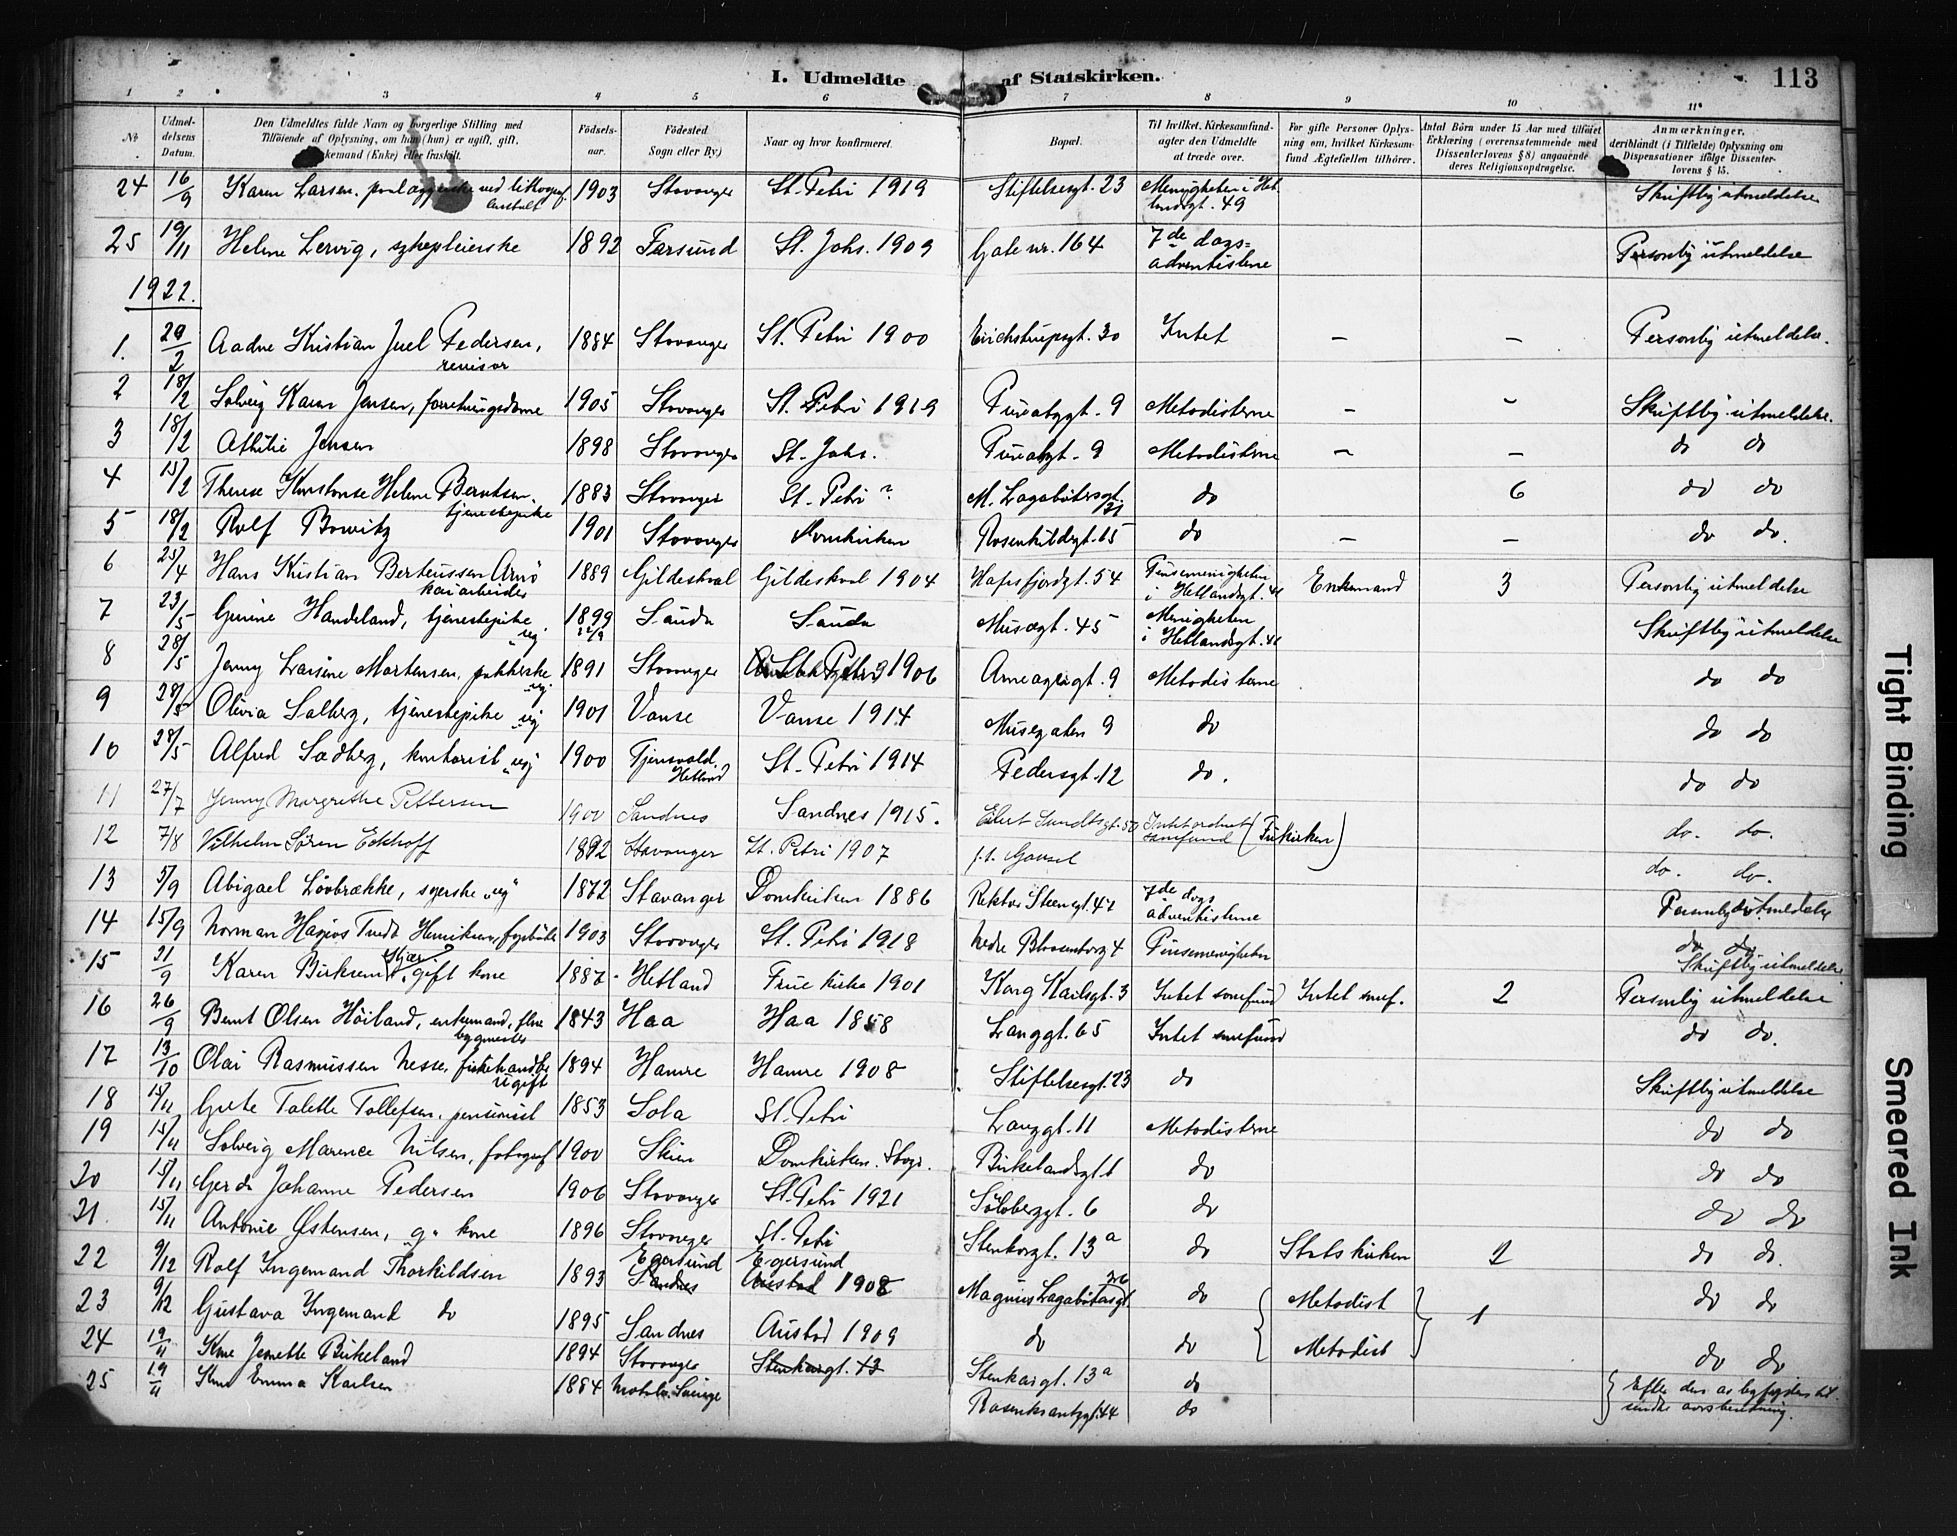 I. Udmeldte af Statskirken.
113
1 2 3 4 5 6 7 8 9 10 11
No
Udmeldelsens Datum.
Den Udmeldtes fulde Navn og borgerlige Stilling med Tilföiende af Oplysning, om han (hun) er ugift, gift, kemand (Enke) eller fraskilt.
Födselsaar.
Födested Sogn eller By.)
Naar og hvor konfirmeret.
Bopæl.
Til hvilket Kirkesamfund agter den Udmeldte at træde over.
For gifte Personer Oplysning om, hvilket Kirkesamfund Ægtefællen tilhörer.
Antal Börn under 15 Aar med tilföiet Erklæring (overensstemmende med Dissenterlovens § 8) angaaende deres Religionsopdragelse.
Anmærkninger, deriblandt (i Tilfælde) Oplysning om Dispensationer ifölge Dissenterlovens § 15.
24 16/9 Karen Larsen, ved lithograf. Anstalt 1903 Stavanger St. Petri 1919 Stiftelsesgt. 23 Menigheten i Hetlandsgt. 49 Skriftlig utmeldelse
25 19/11 Helene Lervig, sykepleierske 1892 Farsund St. Johs. 1909 Gate nr. 164 7de dags= adventistene Personlig utmeldelse
1922.
1. 29/2 Aadne Kristian Juel Pedersen, revisor 1884 Stavanger St. Petri 1900 Erichstrupsgt. 30 Intet – – Personlig utmeldelse.
2 18/2 Solveig Karen Jensen, forretningsdame 1905 Stavanger St. Petri 1919 9 Metodisterne – – Skriftlig utmeldelse.
3 18/2 Athilie Jensen 1898 Stavanger St. Johs. 9 Metodisterne – – do do
4 15/2 Therese Konstanse Helene Berntsen, tjenestepike 1883 Stavanger St. Petri ? M. Lagabøtersgt. do 6 do do
5 18/2 Rolf Bowitz 1901 Stavanger Domkirken Rosenkildegt. 65 do – – do do.
6 25/4 Hans Kristian Berteussen Arnö kaiarbeider 1889 Gildeskaal Gildeskaal 1904 Hafrsfjordgt. 54 Pinsemenigheten i Hetlandsgt. 41 Enkemand 3 Personlig utmeldelse
7 23/5 Gurine Handeland, tjenestepike ug. 1899 Sauda Sauda Musægt. 45 Menigheten i Hetlandsgt. 41 Skriftlig utmeldelse
8 28/5 Jenny Larsine Mortensen, pakkerske ug. 1891 Stavanger St. Petri 1906 Arneagergt. 9 Metodisterne do do
9 28/5 Olivia Salberg, tjenestepike ug 1901 Vanse Vanse 1914 Musegaten 9 do do do
10 28/5 Alfred Sadberg, kontorist ug 1900 Tjensvold. Hetland St. Petri 1914 Pedersgt. 12 do. do do
11 27/7 Jenny Margrethe Pettersen 1900 Sandnes Sandnes 1915. Eilert Sundtsgt. 50 Intet ordnet samfund (Frikirken) do. do.
12 7/8 Vilhelm Sören Eckhoff 1892 Stavanger St. Petri 1907 p.t. Gausel do. do.
13 5/9 Abigael Lövbrække, syerske „ug“ 1872 Stavanger Domkirken 1886 Rektor Steensgt. 47 7de dags adventisterne Personlig utmeldelse
14 15/9 Norman Hagios Tvedt Henriksen, 1903 Stavanger St. Petri 1918 Nedre Blaasenborg 4 Pinsemenigheten do do
15 21/9 Karen Birksem gift kone 1887 Hetland Frue kirke 1901 Kong Karlsgt. 3 Intet samfund Intet smf. 2 Skriftlig utmeldelse Personlig utmeldelse
16 26/9 Bernt Olsen Höiland, enkemand, bygmester 1843 Haa Haa 1858 Langgt. 65 Intet samfund do do.
17 13/10 Olai Rasmussen Nesse, fiskehandler ugift 1894 Hamre Hamre 1908 Stiftelsesgt. 23 do Skriftlig utmeldelse
18 15/11 Grete Talette Tollefsen, pensionist 1853 Sola St. Petri Langgt. 11 Metodisterne do do
19 15/11 Solveig Marence Nilsen, fotograf 1900 Skien Domkirken. Stvgr. Birkelandsgt 1 do do do
20 15/11 Gerda Johanne Pedersen 1906 Stavanger St. Petri 1921 Solsberggt. 6 do do do
21. 15/11 Antonie Østensen, g. kone 1896 Stavanger St. Petri Stenkargt. 13a do Statskirken 2 do do.
22 9/12 Rolf Ingemand Thorkildsen 1893 Egersund Sandnes Egersund Austad 1908 Magnus Lagabøtersgt. do Metodist 1 do do
23 9/12 Gustava Ingemand do 1895 Sandnes Austad 1909 do do Metodist do do
24 19/11 Kone Jenette Birkeland 1894 Stavanger Stenkargt. 13 Stenkargt. 13a do
25 19/11 Kone Emma Karlsen 1884 Rosenkrantzgt. 44 do Efter den av sendte aarsberetning.
Tight Binding
Smeared Ink